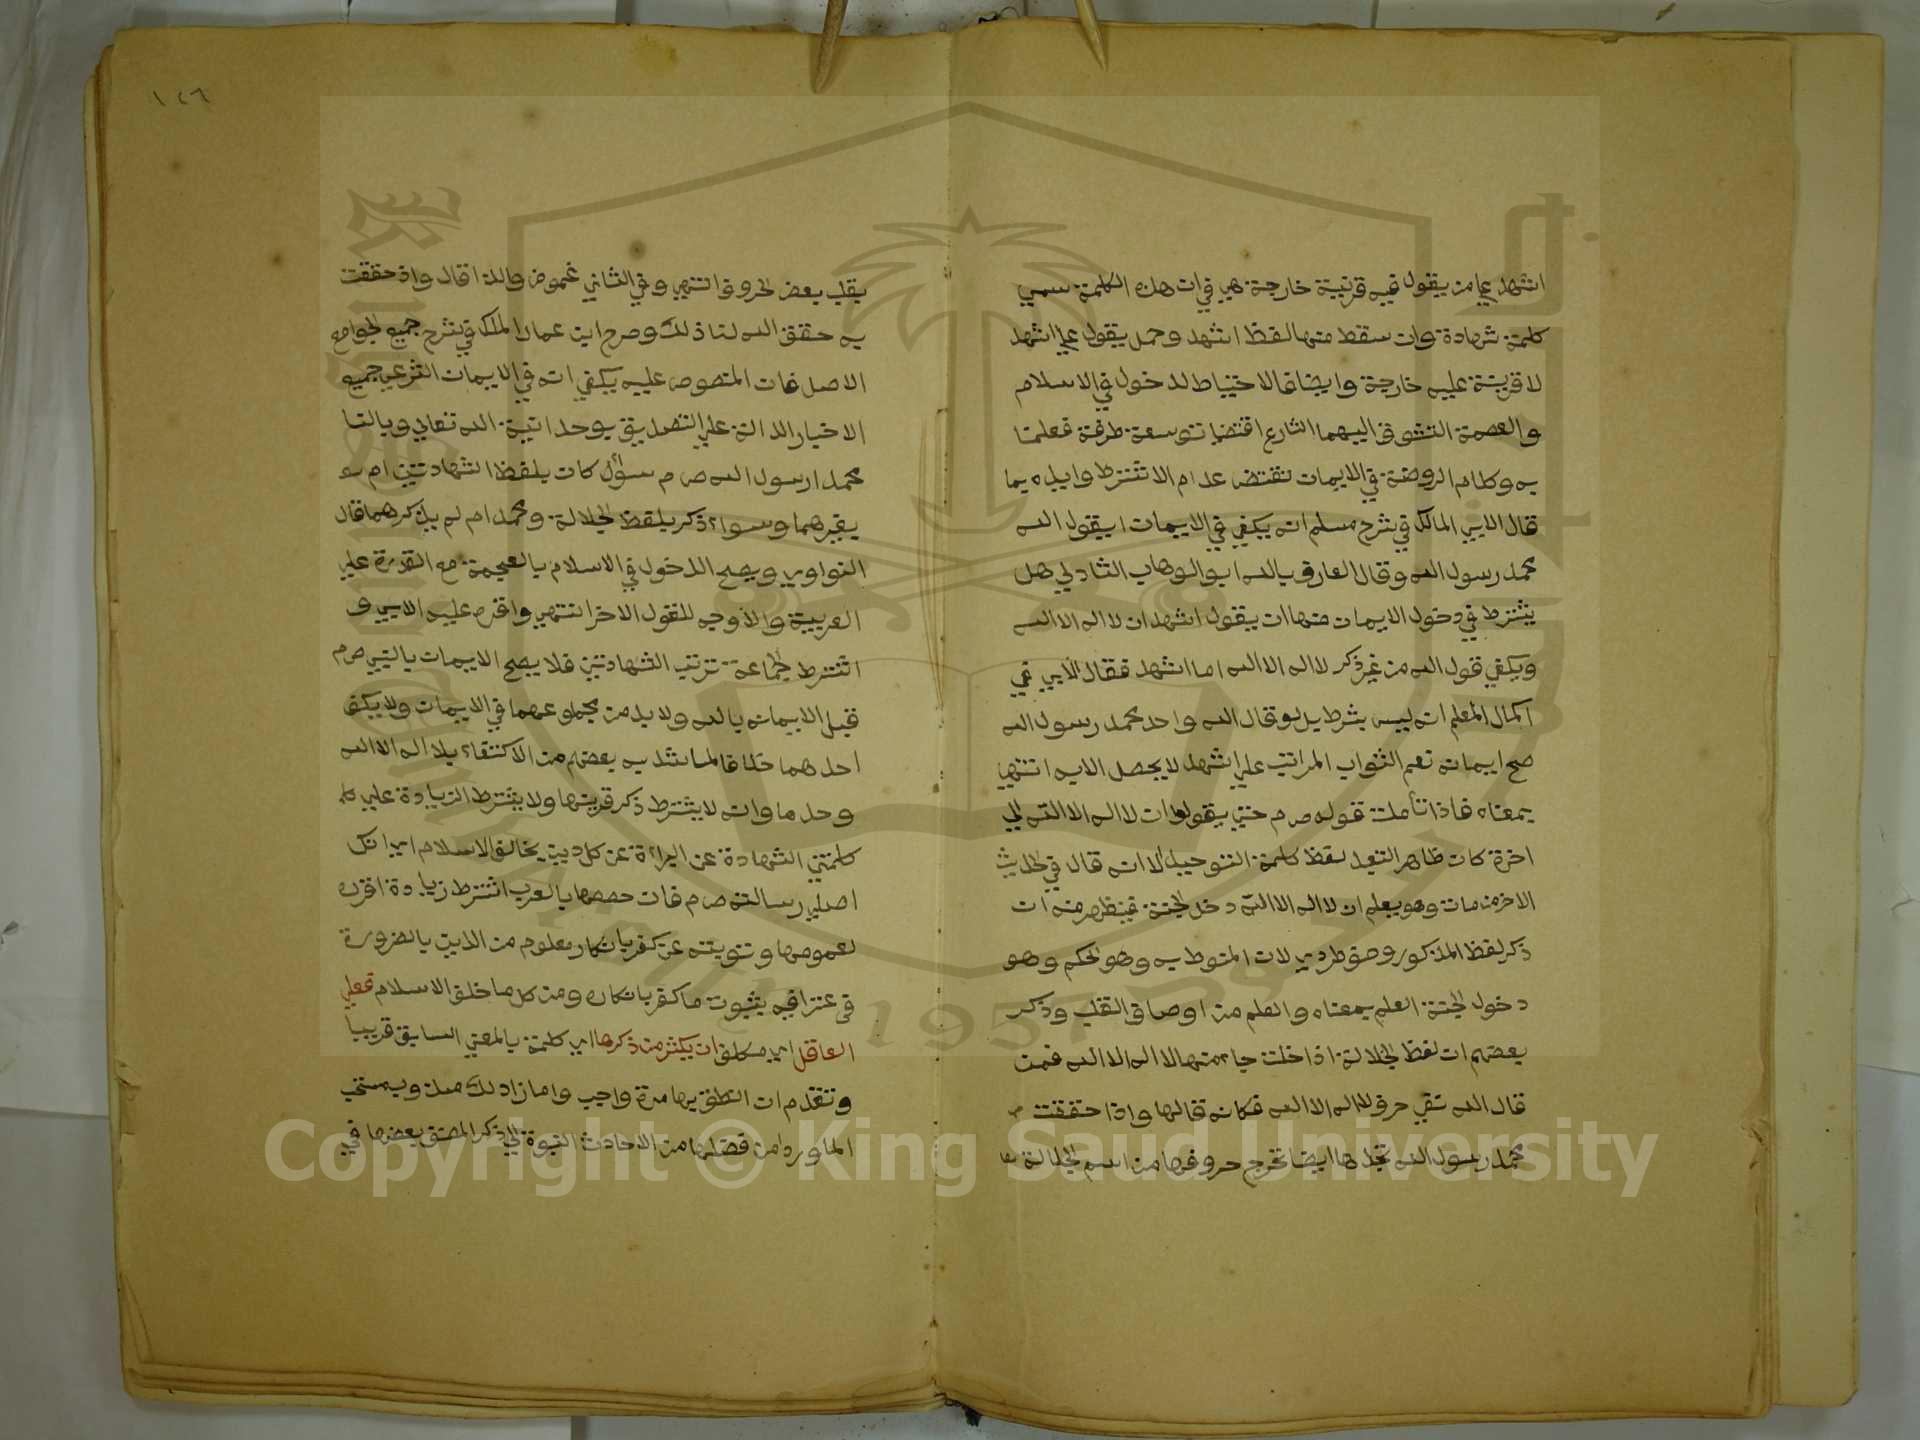 اشهد علي من يقول فيه قرنية خارجة هي في ان هذه الكلمة سمي
كلمة شهادة وان سقط منها لفظ اشهد وحمل يقول علي اشهد
لا قرينة عليه خارجة وايضا فالاحتياط لدخول في الاسلام
والعصمة التشوف اليهما الشارع اقتضيا توسعة طرفة فعلمنا
به وكلام الروضة في الايمان تقتض عدم الاشترط وايده بما
قال الابي المالكي في شرح مسلم انه يكفي في الايمان ا يقول الله
محمد رسول الله وقال العارف بالله ابو الوهاب الشادلي هل
يشترط في دخول الايمان منها ان يقول اشهد ان لا اله الا الله
ويكفي قول الله من غير ذكر لا اله الا الله اما اشهد فقال الابي في
اكمال المعلم انه ليس بشرط بل لو قال الله واحد محمد رسول الله
صح ايمانه نعم الثواب المراتب علي اشهد لا يحصل الا به انتهيا
بمعناه فاذا تأملت قوله ص م حتي يقولوا ان لا اله الا الله الي
اخرة كان ظاهر التعبد لفظ كلمة التوحيد الا انه قال في الحديث
الاخر من مات وهو يعلم ان لا اله الا الله دخل الجنة فبنظهر منه ان
ذكر لفظ المذكور وصف طردي لان المنوط به وهو الحكم وهو
دخول الجنة العلم بمعناه والعلم من اوصاف القلب وذكر
بعضهم ان لفظ الجلالة اذا خلت جاء منها لا اله الا الله فمن
قال الله بقي حروف لا اله الا الله فكانه قالها واذا حققت
محمد رسول الله تجدها ايضا تخرج حروفها من اسم الجلالة
١٢٦
يقلب بعض الحروف انتهي وفي الثاني غموض ولذا قال واذ حققت
به حقق الله لنا ذلك وصرح ابن عمار المالكي في شرح جميع الجوامع
الاصل فان المنصوص عليه يكفي انه في الايمان الشرعي جميع
الاخبار الدالة علي التصديق بوحدانية الله تعالي وبالنا
محمد ا رسول الله ص م سؤل كان بلفظ الشهادتين ام
يغيرهما وسواء ذكر بلفظ الجلالة ومحمد ام لم يذكرهما قال
النواوي ويصح الدخول في الاسلام بالعجمة مع القدرة علي
العربية والاوجه للقول الاخر انتهي واقره عليه الابي و
اشترط جماعة ترتيب الشهادتين فلا يصح الايمان بالنبي ص م
قبل الايمان بالله ولا بد من مجموعهما في الايمان ولا يكفي
احدهما خلافا لما شذ به بعضهم من الاكتفاء بلا اله الا الله
وحدها وانه لا يشترط ذكر قرينها ولا يشترط الزيادة علي
كلمتي الشهادة عن البراءة عن كل دين يخالف الاسلام الا ان انكل
اصلي رسالته ص م فان خصصها بالعرب اشترط زيادة اقره
لعمومها وتوبته عن كفر بانكار معلوم من الدين بالضرورة
في عترافه بثبوت ما كفر بانكاره ومن كل ما خلف الاسلام فعلي
العاقل اي مكلف ان يكثر من ذكرها اي كلمة بالمعني السابق قريبا
وتقدم ان النطق بها مرة واجب واما زاد لك مند ويستحب
الما ورد من فضلها من الاحاديث النبوة الي ذكر المصنف بعضها في
Copyright © King Saud University
1957